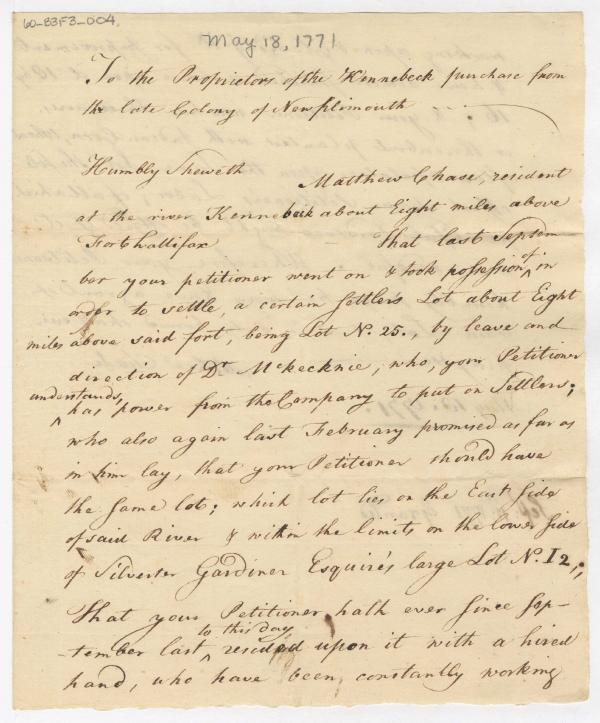 60-83F3-004.
May 18, 1771
To the Proprietors of the Kennebeck purchase from
the late Colony of New Plimouth
Humbly Sheweth
Matthew Chase, resident
at the river Kennebeck about Eight miles above
Fort hallifax
That last Septem
ber your petitioner went on & took possession of in
order to settle, a certain settlers Lot about Eight
miles above said fort, being Lot N. 25., by leave and
direction of Dr McKecknie, who, your Petitioner
understands, has power from the Company to put on Settlers;
who also again last February promised as far as
in him lay, that your Petitioner should have
the same lot; which lot lies on the East side
of said River & within the limits on the lower side
of Silvester Gardiner Esquire's large Lot N. 12,;
That your Petitioner hath ever since Sep-
-tember last to this day resided upon it with a hired
hand, who have been constantly working